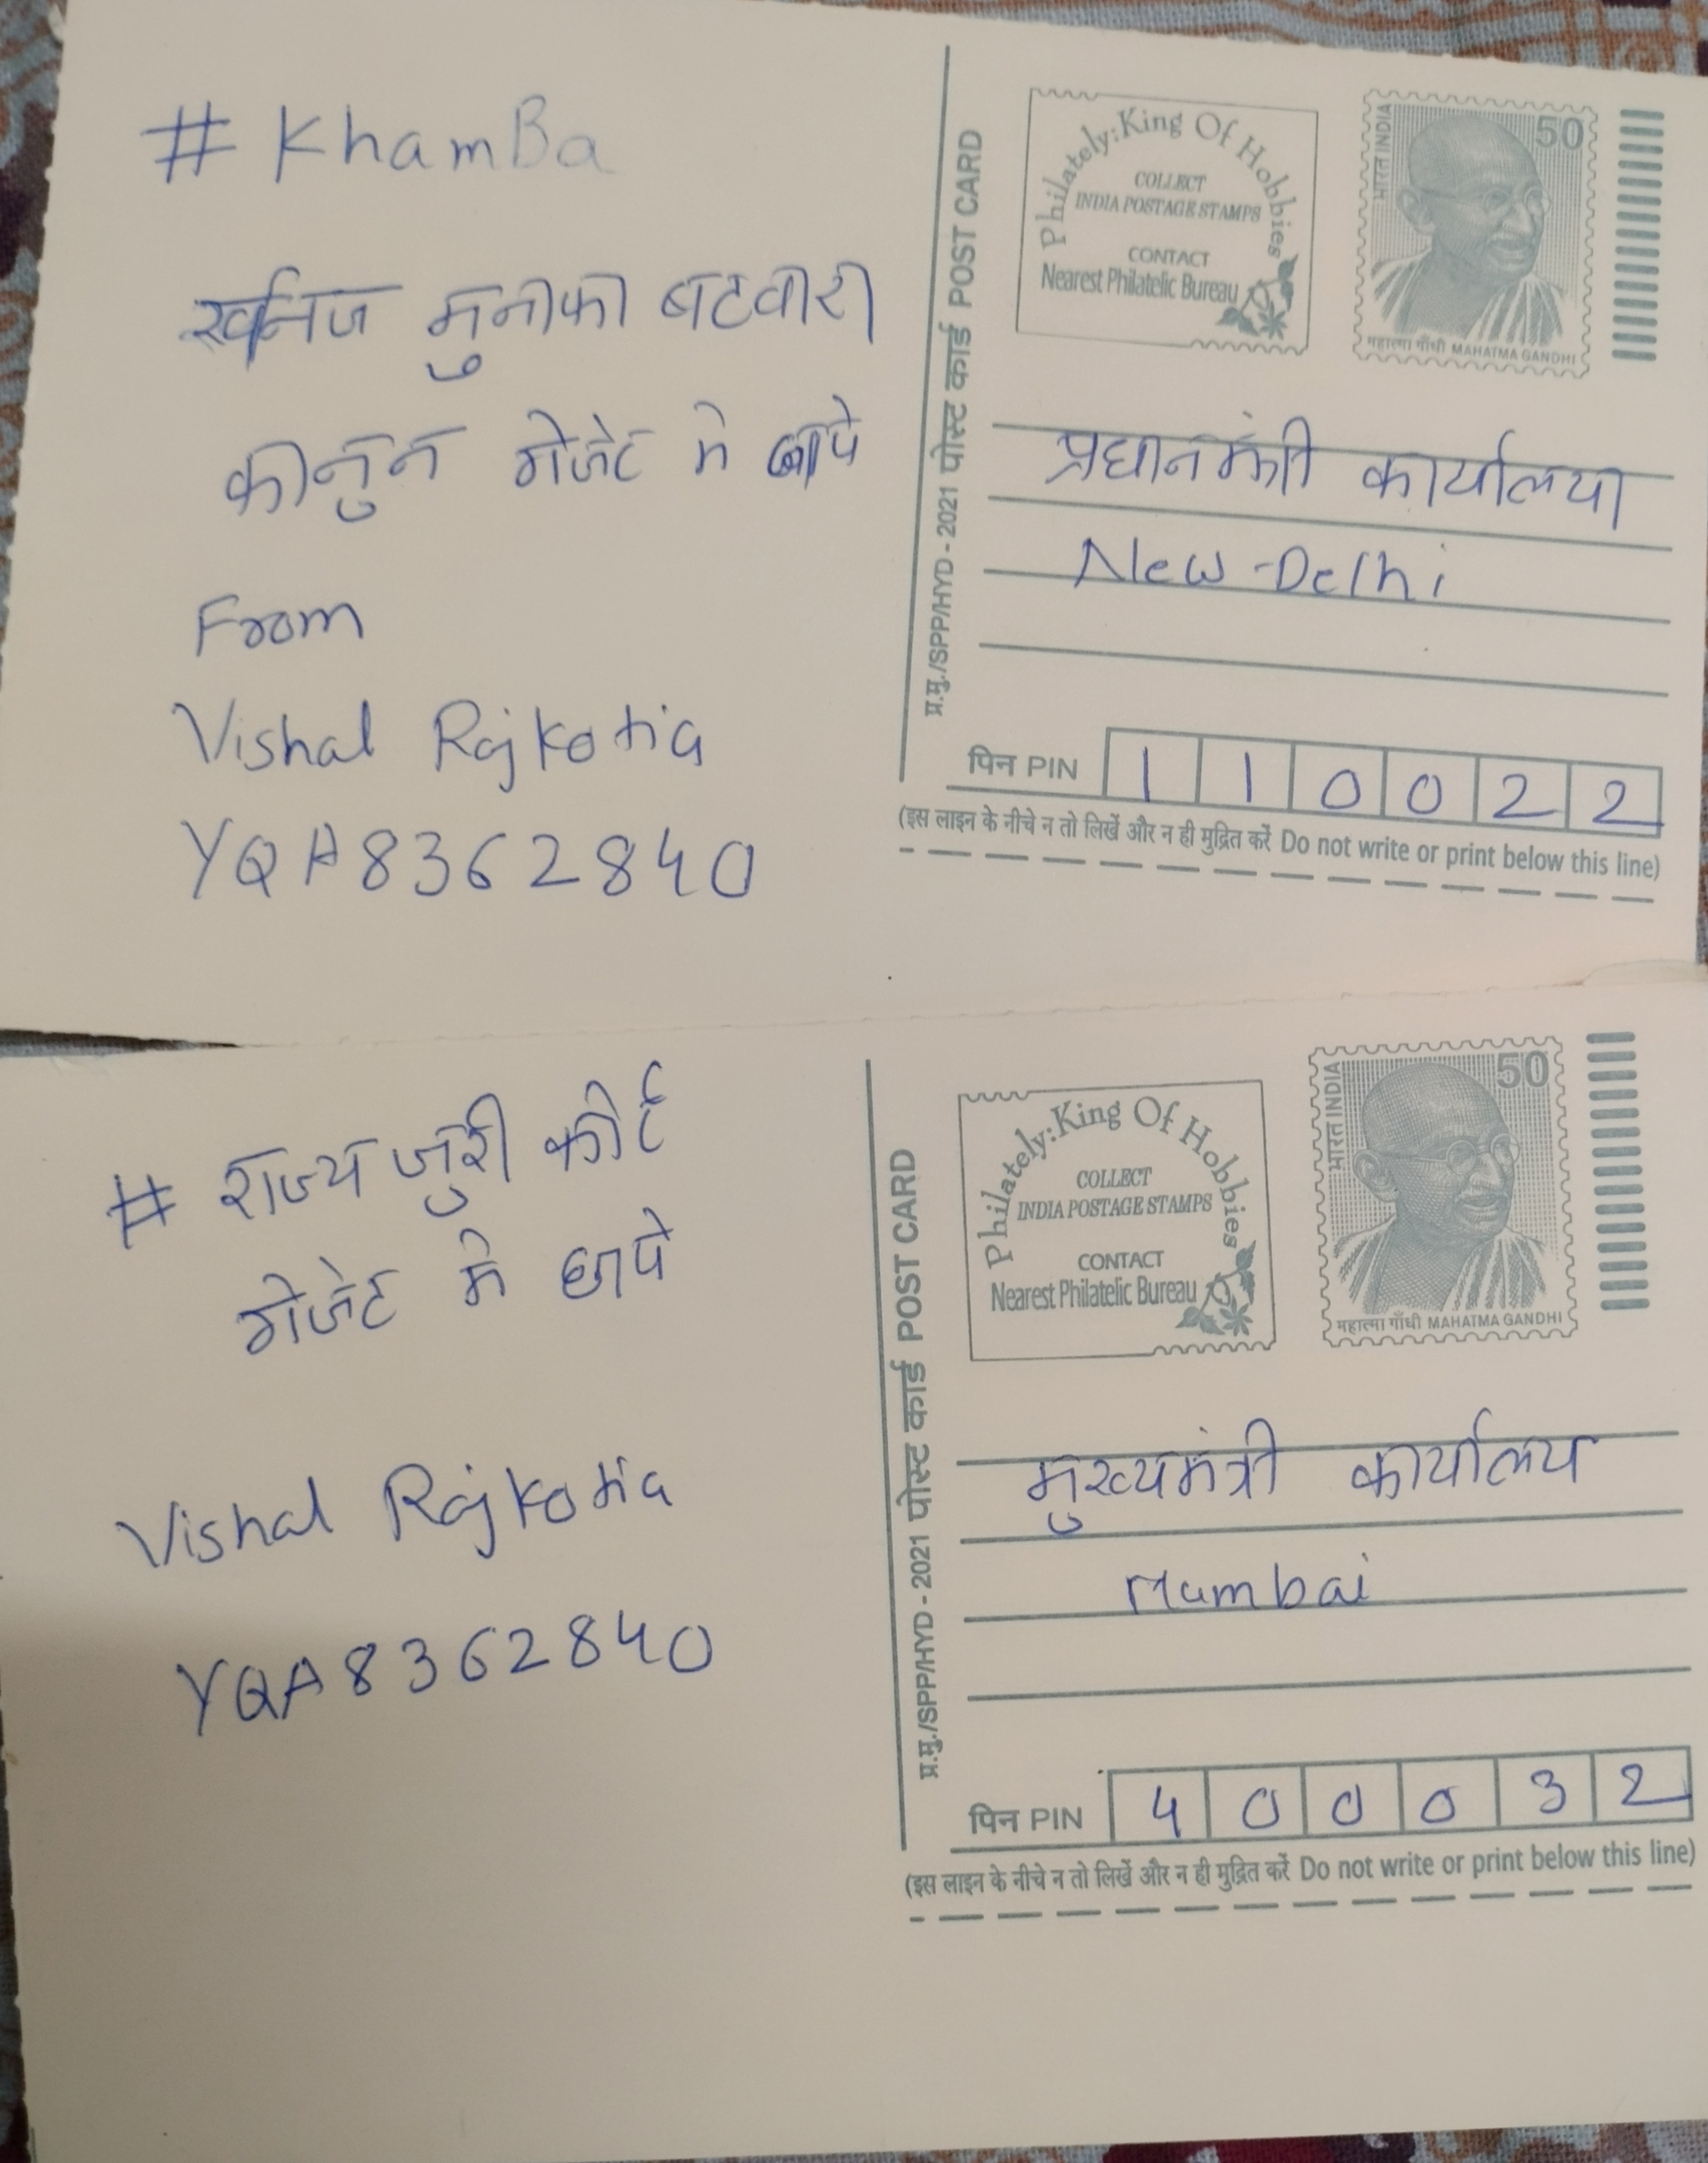 #KhamBa
खनिज मुनाफा बटवारा
कानुन गेजेट मे छापे
From
Vishal Rajkotia
YQA8362840
प्र.मु./SPP/HYD - 2021 पोस्ट कार्ड POST CARD
Philately:King Of Hobbies
COLLECT
INDIA POSTAGE STAMPS
CONTACT
Nearest Philatelic Bureau
भारत INDIA
50
महात्मा गाँधी MAHATMA GANDHI
प्रधानमंत्री कार्यालया
New-Delhi
पिन PIN 110022
(इस लाइन के नीचे न तो लिखें और न ही मुद्रित करें Do not write or print below this line)
# राज्य जुरी कोर्ट
गेजेट मे छापे
Vishal Rajkotia
YQA8362840
प्र.मु./SPP/HYD - 2021 पोस्ट कार्ड POST CARD
Philately:King Of Hobbies
COLLECT
INDIA POSTAGE STAMPS
CONTACT
Nearest Philatelic Bureau
भारत INDIA
50
महात्मा गाँधी MAHATMA GANDHI
मुख्यमंत्री कार्यालय
Mumbai
पिन PIN 400032
(इस लाइन के नीचे न तो लिखें और न ही मुद्रित करें Do not write or print below this line)